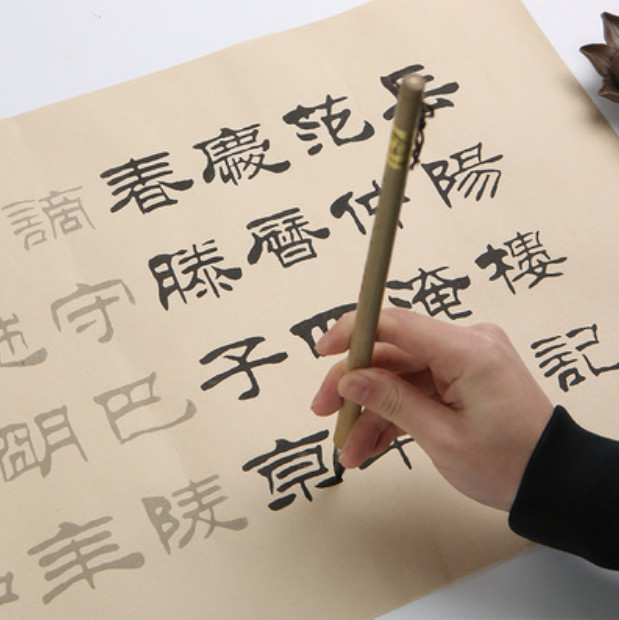 岳陽樓記
范仲淹
慶曆四年
春滕子京
謫守巴陵
明年